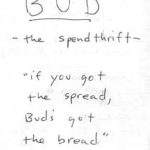 BUD
- the spendthrift -
"if you got
the spread,
Buds got
the bread"